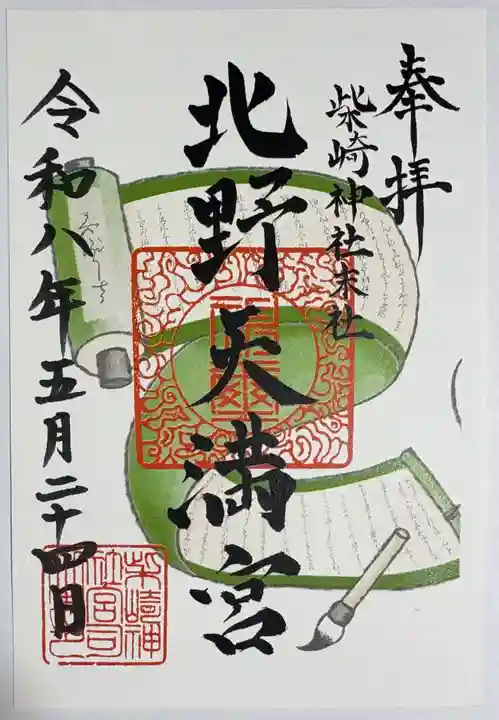 奉拝
柴崎神社末社
北野天満宮
令和八年五月二十四日
柴崎神
社宮司